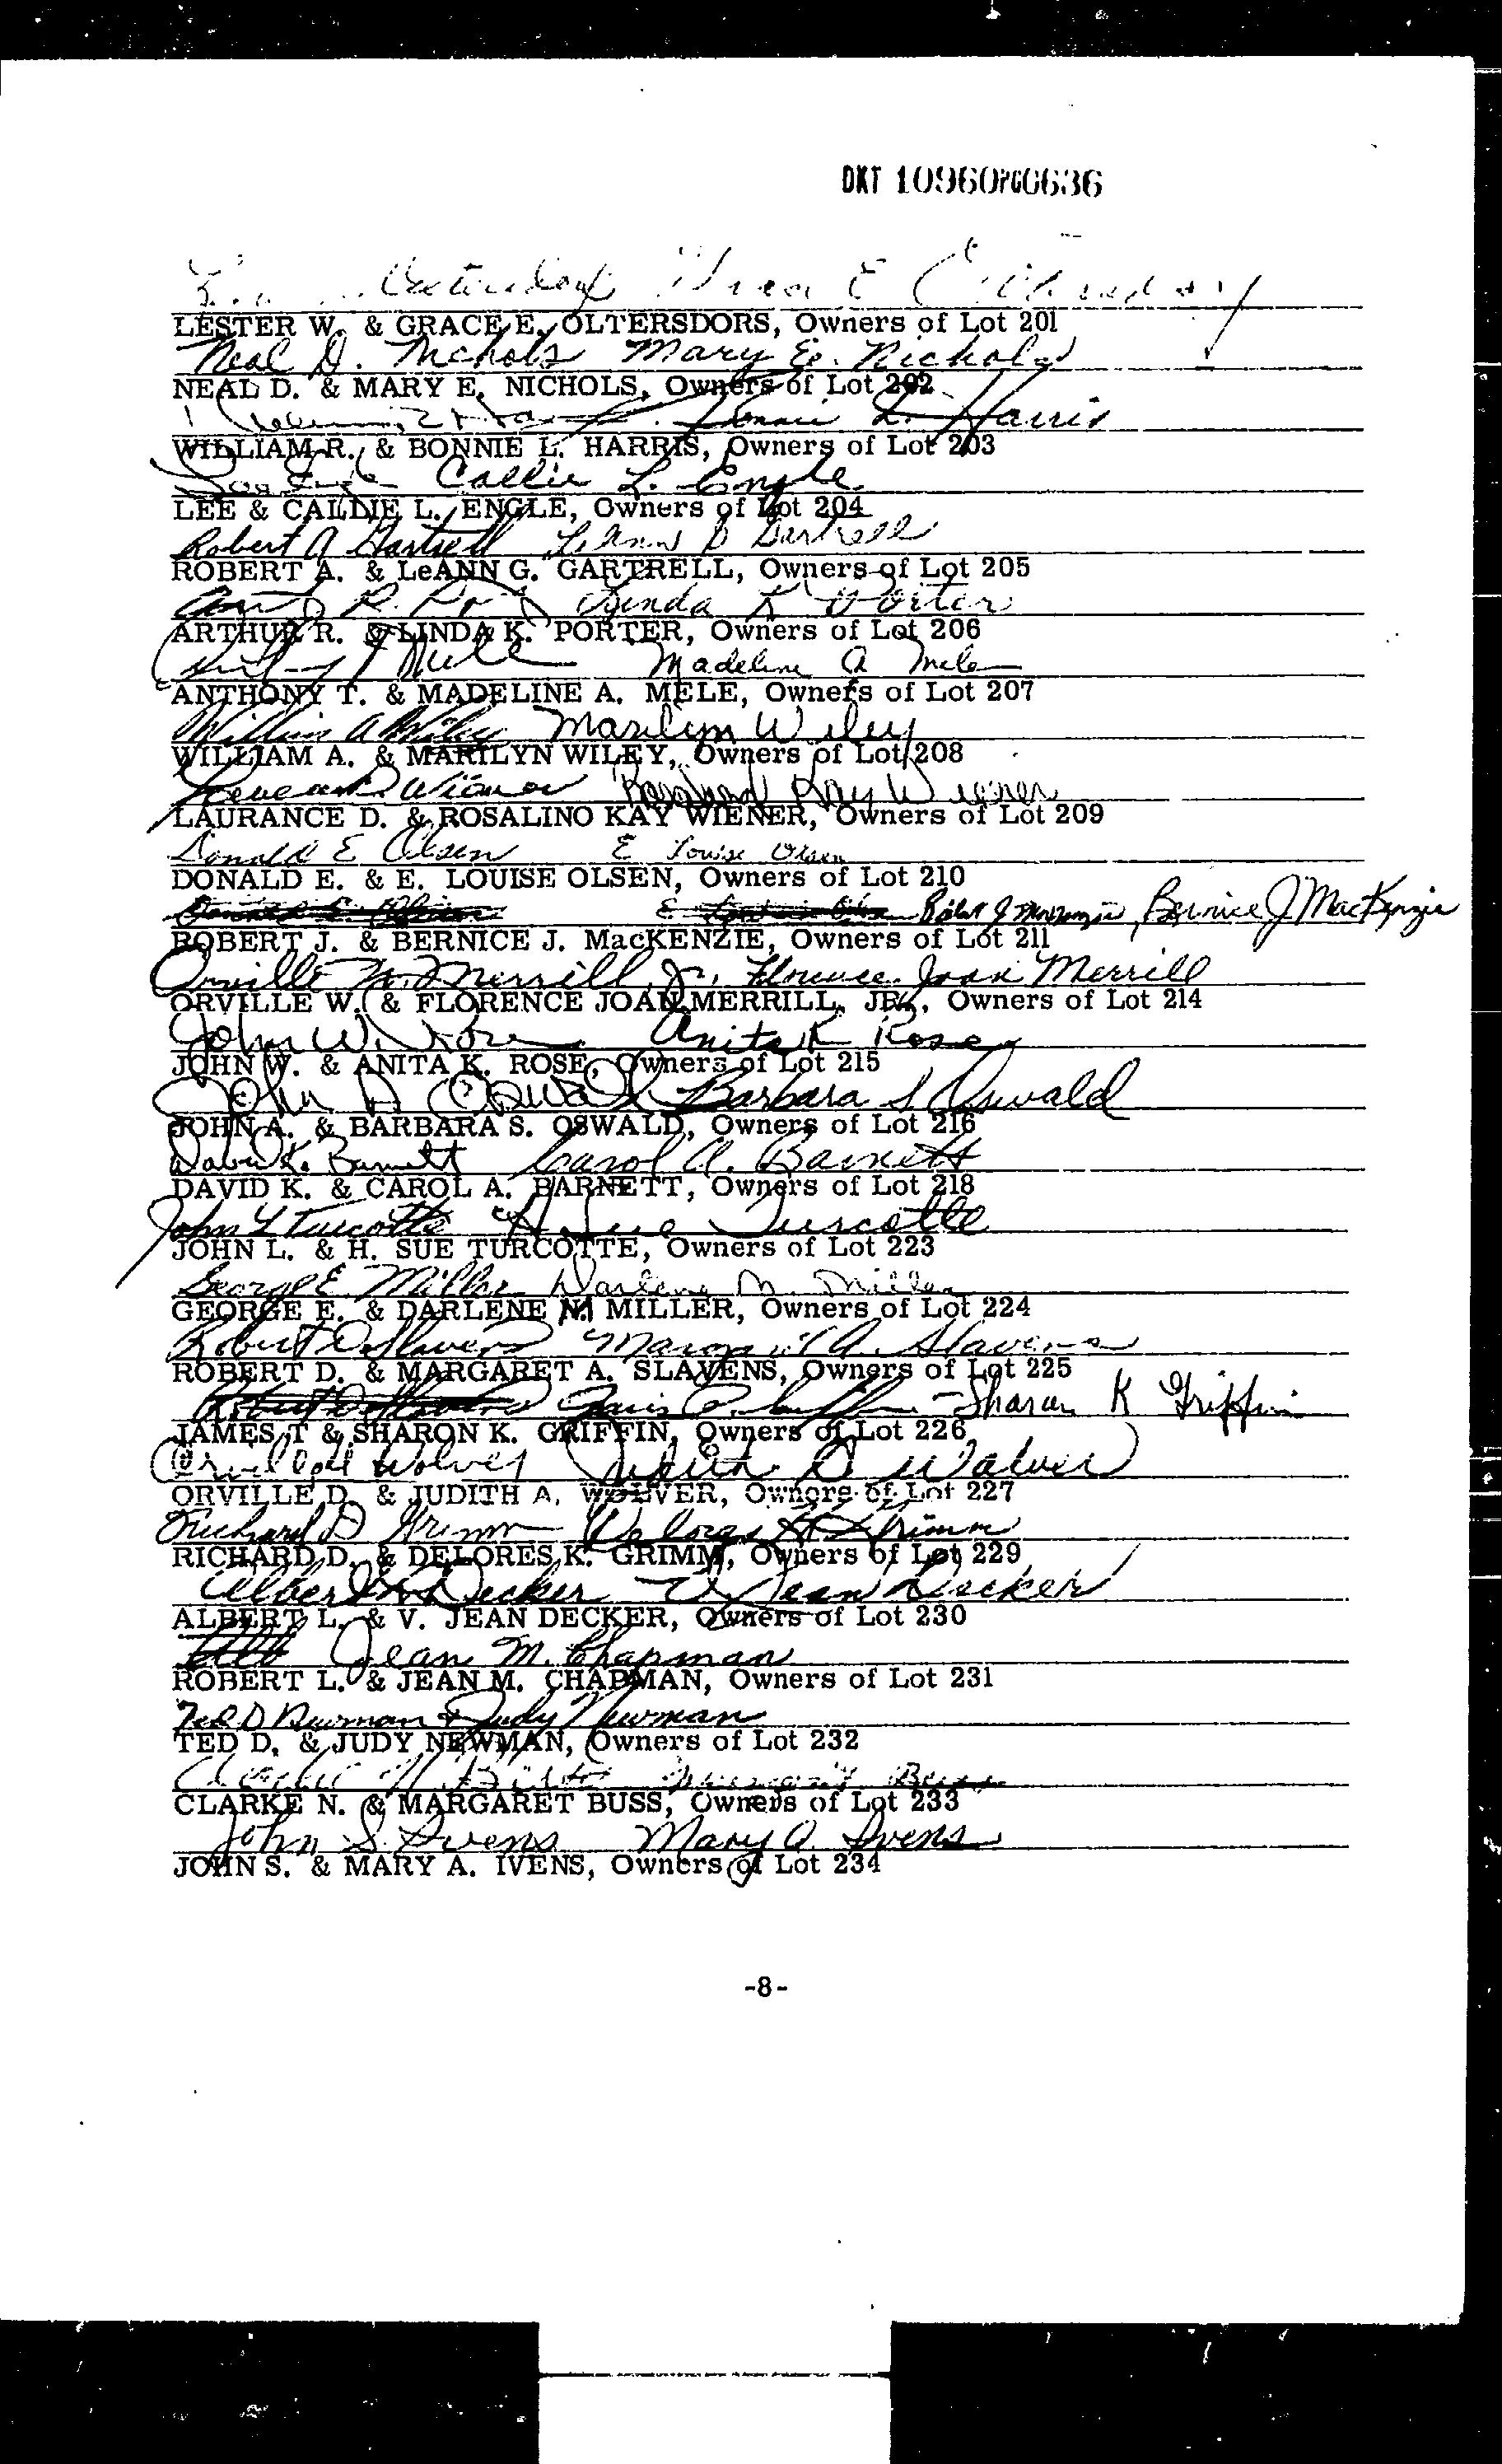 DKT 10960PG0636
LESTER W. & GRACE E. OLTERSDORS, Owners of Lot 201
Neal D. Nichols Mary E. Nichols
NEAL D. & MARY E. NICHOLS, Owners of Lot 202
Bonnie L. Harris
WILLIAM R. & BONNIE L. HARRIS, Owners of Lot 203
Callie L. Engle
LEE & CALLIE L. ENGLE, Owners of Lot 204
Robert A Gartrell LeAnn G Gartrell
ROBERT A. & LeANN G. GARTRELL, Owners of Lot 205
Linda K Porter
ARTHUR R. & LINDA K. PORTER, Owners of Lot 206
Madeline A Mele
ANTHONY T. & MADELINE A. MELE, Owners of Lot 207
William A Wiley Marilyn Wiley
WILLIAM A. & MARILYN WILEY, Owners of Lot 208
Wiener Kay Wiener
LAURANCE D. & ROSALINO KAY WIENER, Owners of Lot 209
Donald E Olsen E Louise Olsen
DONALD E. & E. LOUISE OLSEN, Owners of Lot 210
Robert J MacKenzie, Bernice J MacKenzie
ROBERT J. & BERNICE J. MacKENZIE, Owners of Lot 211
Orville W. Merrill, Jr. Florence Joan Merrill
ORVILLE W. & FLORENCE JOAN MERRILL, JR., Owners of Lot 214
John W. Rose Anita K Rose
JOHN W. & ANITA K. ROSE, Owners of Lot 215
John A Oswald Barbara S Oswald
JOHN A. & BARBARA S. OSWALD, Owners of Lot 216
David K. Barnett Carol A. Barnett
DAVID K. & CAROL A. BARNETT, Owners of Lot 218
John L Turcotte H. Sue Turcotte
JOHN L. & H. SUE TURCOTTE, Owners of Lot 223
George E. Miller Darlene M. Miller
GEORGE E. & DARLENE M MILLER, Owners of Lot 224
Robert D Slavens Margaret A. Slavens
ROBERT D. & MARGARET A. SLAVENS, Owners of Lot 225
Sharon K Griffin
JAMES T & SHARON K. GRIFFIN, Owners of Lot 226
Wolver Judith A Wolver
ORVILLE D. & JUDITH A. WOLVER, Owners of Lot 227
Richard D Grimm Delores K Grimm
RICHARD D. & DELORES K. GRIMM, Owners of Lot 229
Albert L Decker V. Jean Decker
ALBERT L. & V. JEAN DECKER, Owners of Lot 230
Jean M. Chapman
ROBERT L. & JEAN M. CHAPMAN, Owners of Lot 231
Ted D Newman & Judy Newman
TED D. & JUDY NEWMAN, Owners of Lot 232
Clarke N. Buss Margaret Buss
CLARKE N. & MARGARET BUSS, Owners of Lot 233
John S. Ivens Mary A. Ivens
JOHN S. & MARY A. IVENS, Owners of Lot 234
-8-